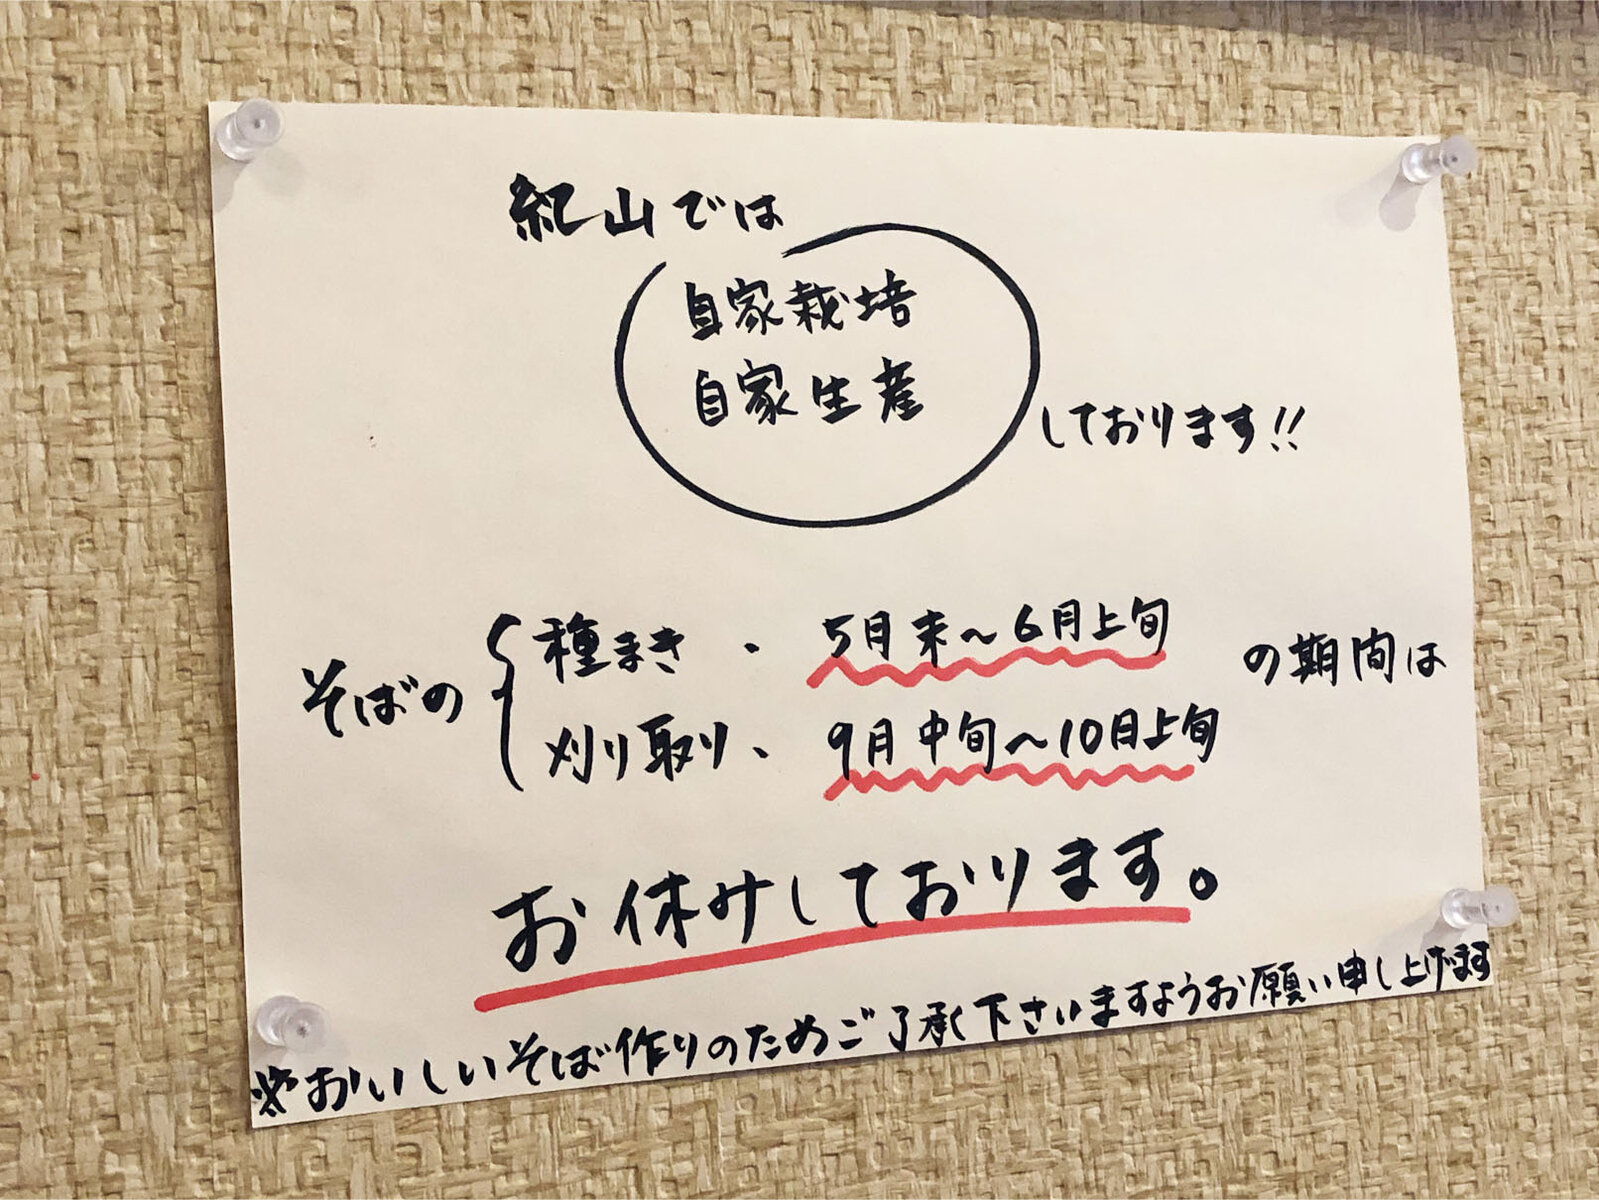 紀山では
自家栽培
自家生産
しております!!
そばの
種まき・5月末～6月上旬
刈り取り、9月中旬～10月上旬
の期間は
お休みしております。
※おいしいそば作りのためご了承下さいますようお願い申し上げます